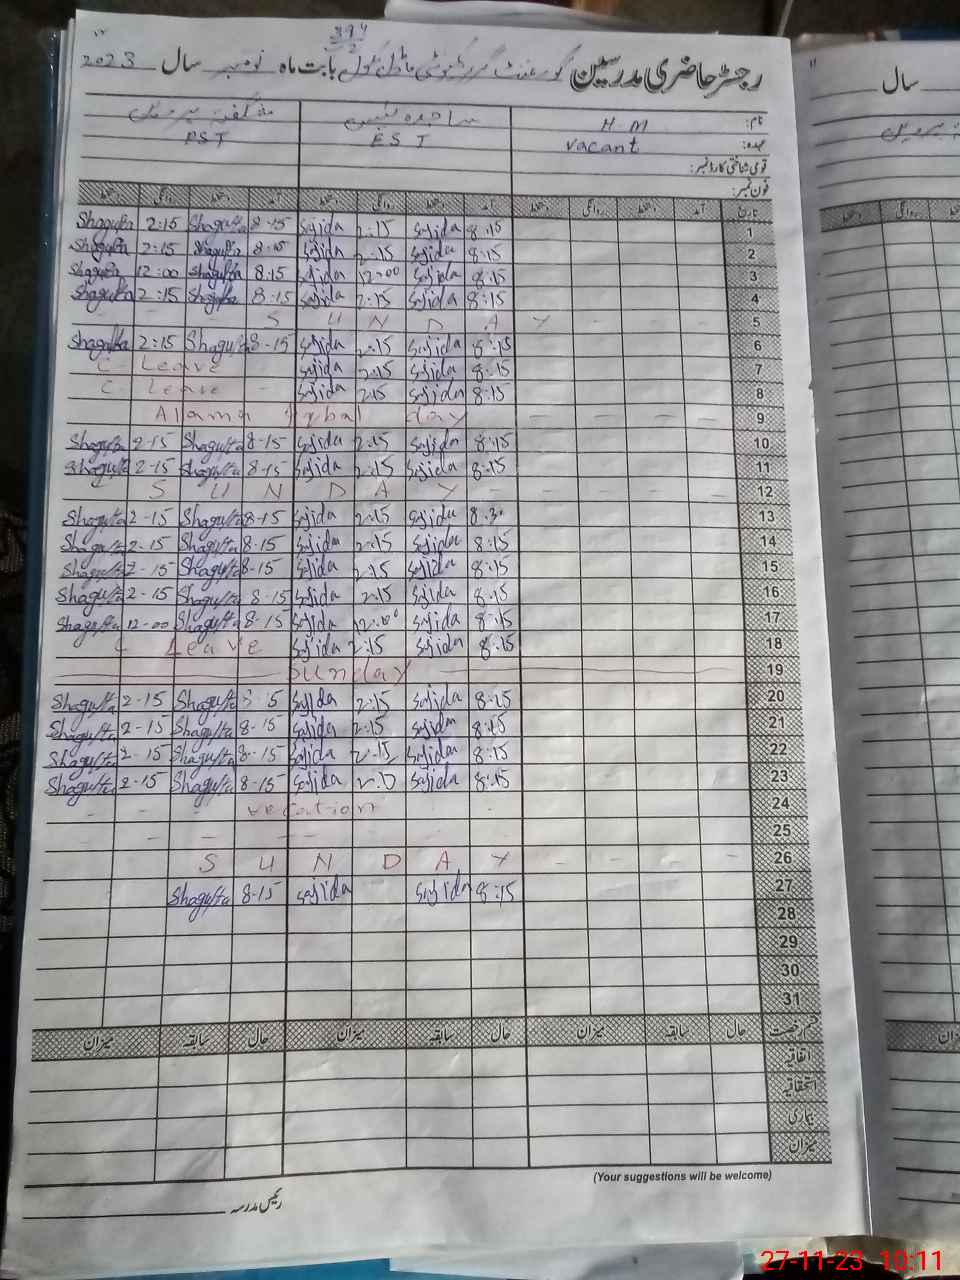 رجسٹر حاضری مدرسین گورنمنٹ گرلز کمیونٹی ماڈل سکول بابت ماہ نومبر سال 2023
نام: H-M ساجدہ شگفتہ
عہدہ: vacant EST PST
قومی شناختی کارڈ نمبر:
فون نمبر:
تاریخ آمد دستخط روانگی دستخط آمد دستخط روانگی دستخط آمد دستخط روانگی دستخط
Shagufta 2:15 Shagufta 8-15 Sajida 2:15 Sajida 8:15 1
Shagufta 2:15 Shagufta 8:15 Sajida 2:15 Sajida 8:15 2
Shagufta 12:00 Shagufta 8:15 Sajida 12:00 Sajida 8:15 3
Shagufta 2:15 Shagufta 8:15 Sajida 2:15 Sajida 8:15 4
S U N D A Y - - - 5
Shagufta 2:15 Shagufta 8-15 Sajida 2:15 Sajida 8:15 6
C- Leave - Sajida 2:15 Sajida 8:15 7
C- Leave - Sajida 2:15 Sajida 8:15 8
Alama Iqbal day - - - - 9
Shagufta 2-15 Shagufta 8-15 Sajida 2:15 Sajida 8:15 10
Shagufta 2-15 Shagufta 8-15 Sajida 2:15 Sajida 8:15 11
S U N D A Y - - - - 12
Shagufta 2-15 Shagufta 8-15 Sajida 2:15 Sajida 8:30 13
Shagufta 2-15 Shagufta 8-15 Sajida 2:15 Sajida 8:15 14
Shagufta 2-15 Shagufta 8-15 Sajida 2:15 Sajida 8:15 15
Shagufta 2-15 Shagufta 8-15 Sajida 2:15 Sajida 8:15 16
Shagufta 12-00 Shagufta 8-15 Sajida 12:00 Sajida 8:15 17
C Leave Sajida 2:15 Sajida 8:15 18
Sunday 19
Shagufta 2-15 Shagufta Sajida 2:15 Sajida 8:15 20
Shagufta 2-15 Shagufta 8-15 Sajida 2:15 Sajida 8:15 21
Shagufta 2-15 Shagufta 8-15 Sajida 2:15 Sajida 8:15 22
Shagufta 2-15 Shagufta 8-15 Sajida Sajida 8:15 23
- - vecation - 24
- - - -- - 25
S U N D A Y - - - 26
Shagufta 8-15 Sajida Sajida 8:15 27
28
29
30
31
قسم رخصت حال سابقہ میزان حال سابقہ میزان حال سابقہ میزان
اتفاقیہ
استحقاقیہ
بیماری
میزان
(Your suggestions will be welcome)
رئیس مدرسہ
سال
روانگی دستخط
27-11-23 10:11